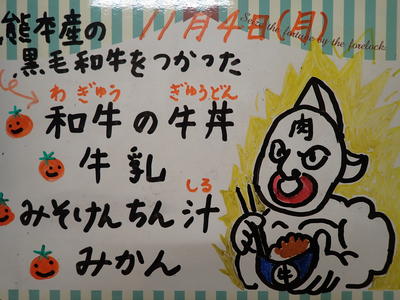 11月4日(月)
the fortune by the forelock.
熊本産の
黒毛和牛をつかった
わぎゅう ぎゅうどん
和牛の牛丼
牛乳
しる
みそけんちん汁
みかん
肉
牛